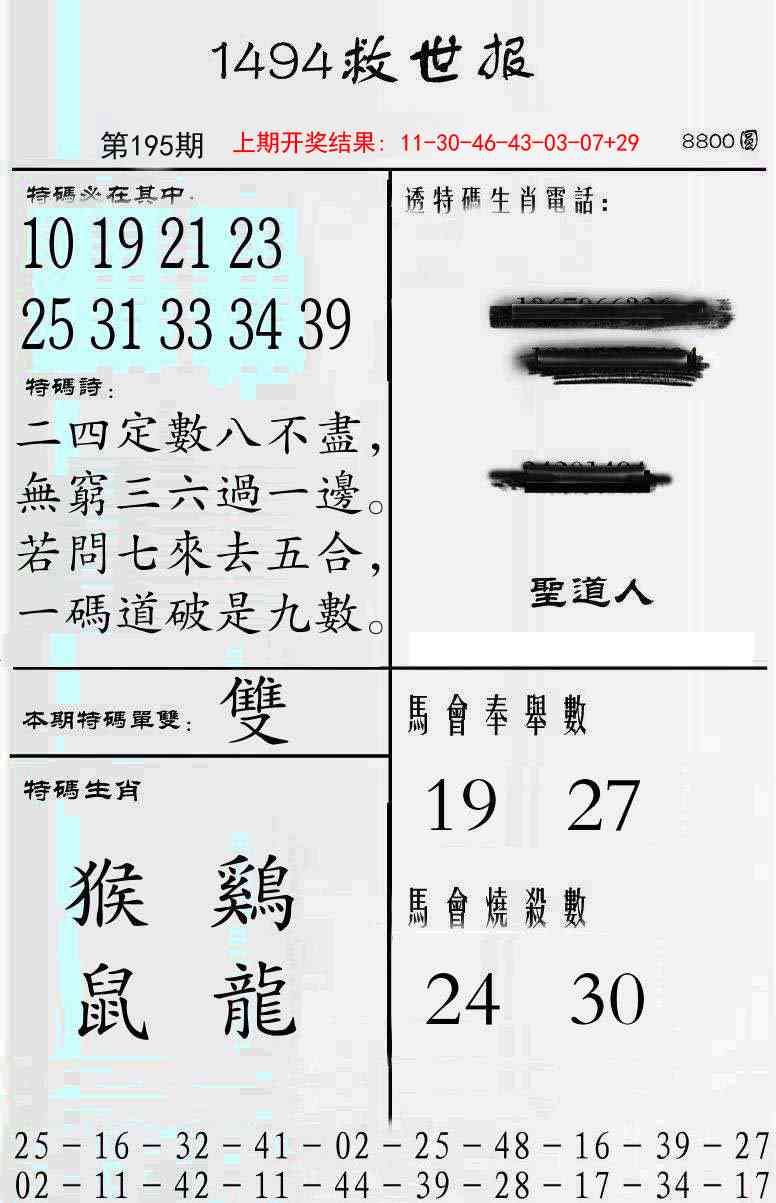 1494救世报
第195期 上期开奖结果：11-30-46-43-03-07+29 8800圓
特碼必在其中.
10 19 21 23
25 31 33 34 39
特碼詩：
二四定數八不盡，
無窮三六過一邊。
若問七來去五合，
一碼道破是九數。
透特碼生肖電話：
聖道人
本期特碼單雙：雙
特碼生肖
猴 鷄
鼠 龍
馬會奉舉數
19 27
馬會燒殺數
24 30
25－16－32－41－02－25－48－16－39－27
02－11－42－11－44－39－28－17－34－17